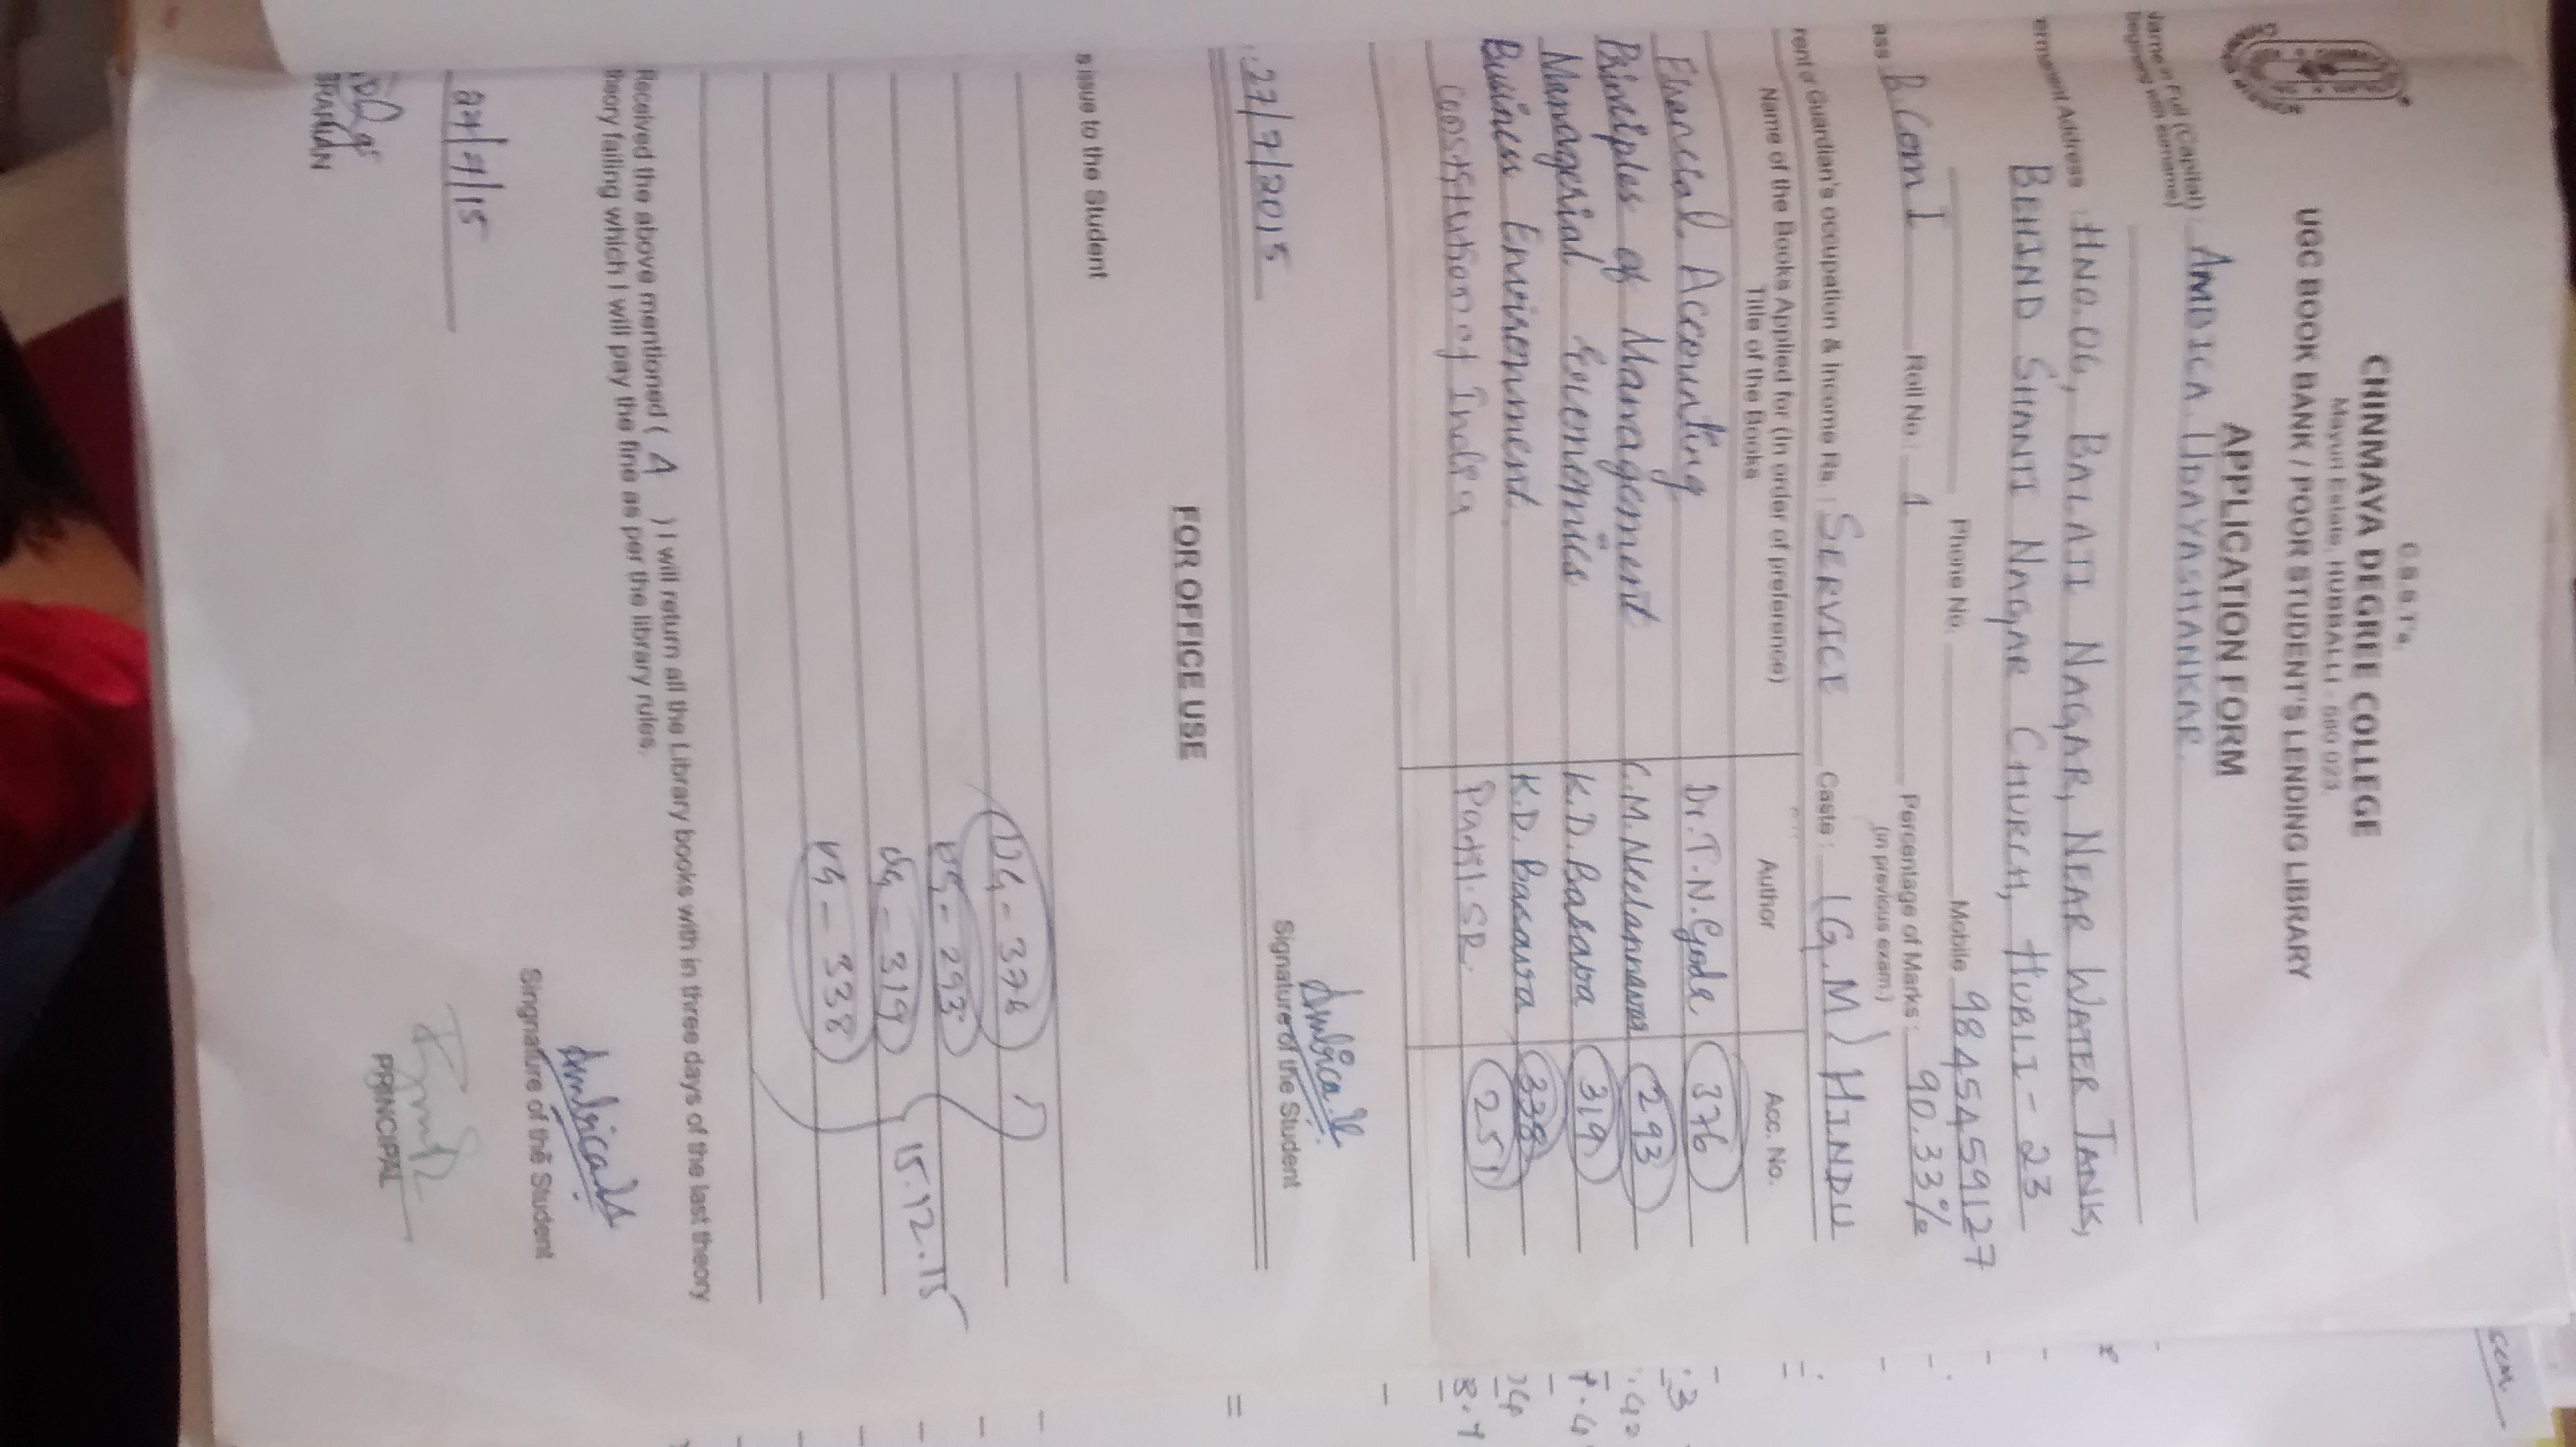 C.S.S.T's,
CHINMAYA DEGREE COLLEGE
Mayuri Estate, HUBBALLI - 580 023.
UGC BOOK BANK / POOR STUDENT'S LENDING LIBRARY
APPLICATION FORM
Name in Full (Capital) : AMBICA UDAYASHANKAR
Begining with surname)
ermanent Address : H.NO.06, BALAJI NAGAR, NEAR WATER TANK,
BEHIND SHANTI NAGAR CHURCH, HUBLI - 23
Phone No. Mobile 9845459127
ass B.Com I Roll No.: 1 Percentage of Marks : 90.33%
(in previous exam.)
rent or Guardian's occupation & Income Rs. : SERVICE Caste : (G.M) HINDU
Name of the Books Applied for (In order of preference)
Title of the Books Author Acc. No.
Financial Accounting Dr. T. N. Goda 376
Principles of Management C.M. Neelannavar 293
Managerial Economics K.D. Basava 319
Business Environment. K.D. Basava 338
Constitution of India Patil. SR. 251
27/7/2015
Signature of the Student
FOR OFFICE USE
s issue to the Student
UG - 376
UG - 293
UG - 319
UG - 338
15.12.15
Received the above mentioned ( 4 ) I will return all the Library books with in three days of the last theory
theory failing which I will pay the fine as per the library rules.
27/7/15
Singnature of the Student
BRARIAN
PRINCIPAL